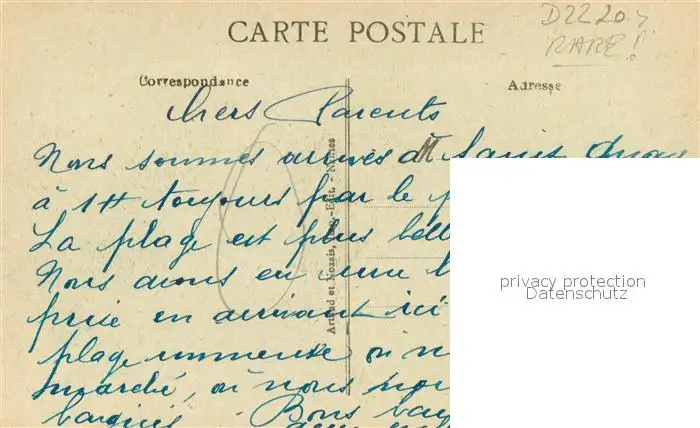 D2220
RARE!!
CARTE POSTALE
Correspondance
Adresse
Chers Parents
Nous sommes arrivés à Saint Quay
à 1H toujours par le
La plage est plus bell
Nous avons eu une
prise en arrivant ici
plage immense ou n
marché, où nous
Bons bai
Artaud et Nozais, Imp.-Edit. - Nantes
privacy protection
Datenschutz